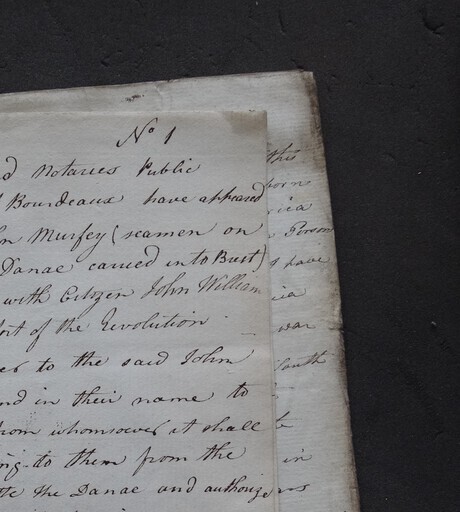 No 1
d Notaries Public
Bourdeaux have appeared
n Murfey (seamen on
Danae carried into Brest)
with Citizen John William
ort of the Revolution
er to the said John
nd in their name to
from whomsoever it shall
ng to them from the
te the Danae and authorize
this
born
rica
Person
s have
ica
war
South
in